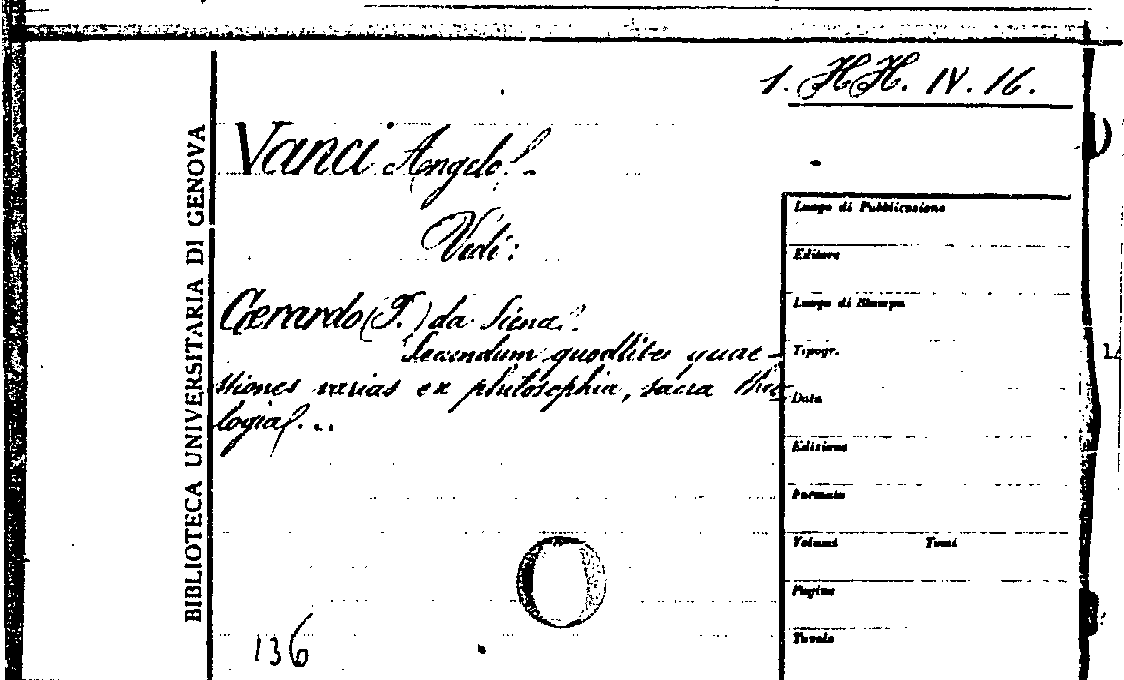 1. HH. IV. 16.
BIBLIOTECA UNIVERSITARIA DI GENOVA
Vanci Angelo.
Vedi:
Gerardo (F.) da Siena.
Secundum quodlibes quae-
stiones varias ex philosophia, sacra theo-
logia...
Luogo di Pubblicazione
Editore
Luogo di Stampa
Tipogr.
Data
Edizione
Formato
Volumi Tomi
Pagine
Tavole
136